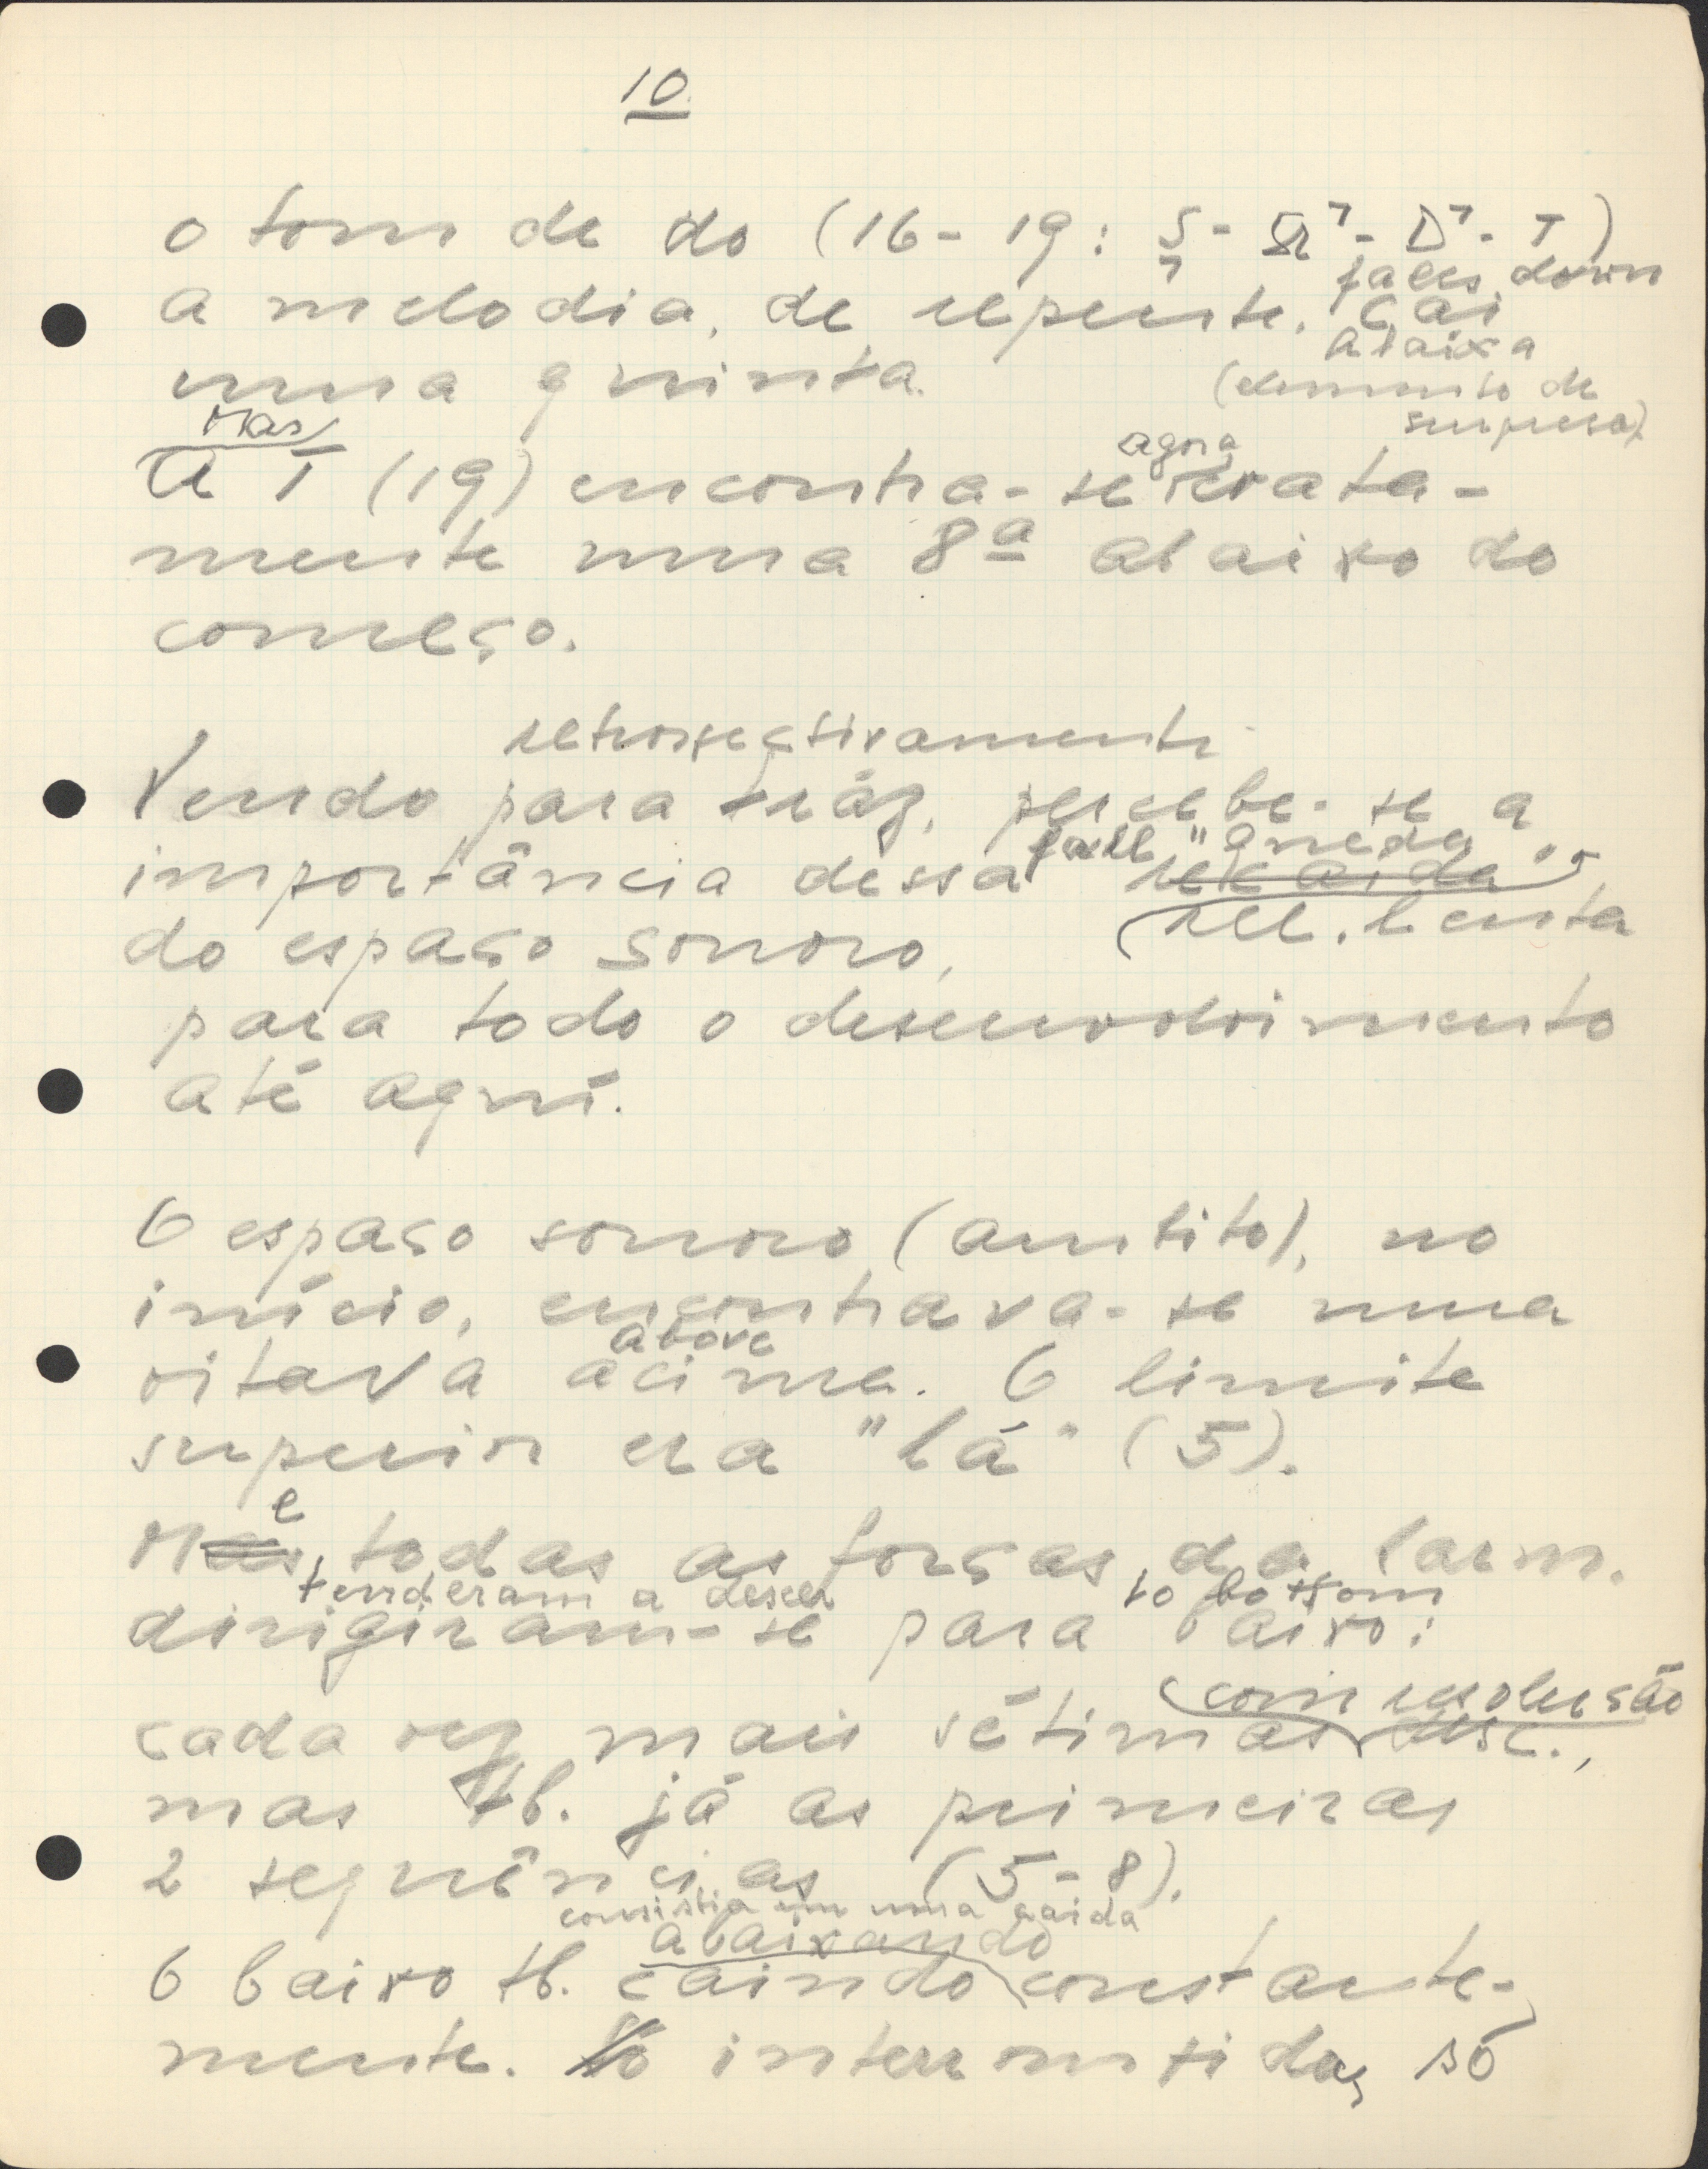 10
o tom de do (16-19: S - 7 - D7 - T)
7 falls down
a melodia, de repente, cai
abaixa
uma quinta. (elemento de
surpresa)
Mas
a T (19) encontra-se agora exata-
mente uma 8ª abaixo do
começo.
retrospectivamente
Vendo para tráz, percebe-se a
fall "queda"
importância dessa recaida
rel. lenta
do espaço sonoro,
para todo o desenvolvimento
até aquí.
O espaço sonoro (ambito), no
início, encontrava-se uma
above
oitava acima. O limite
superior era "lá" (5).
e
Mas, todas as forças da harm.
tenderam a descer to bottom
dirigiram-se para baixo:
com resolução
cada vez mais sétimas desc.,
mas tb. já as primeiras
2 sequências (5-8).
consistia em uma caida
abaixando
O baixo tb. caindo constante-
mente. Só interromtida, só